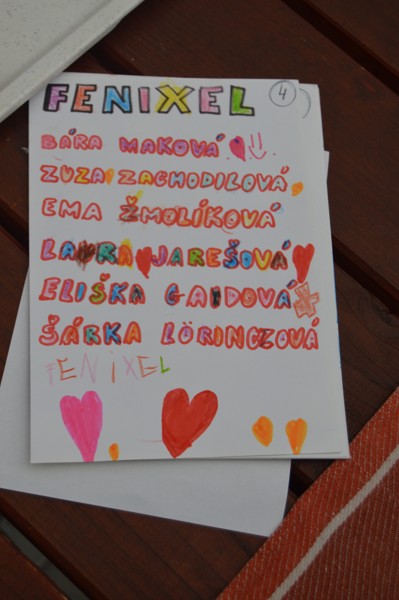 FENIXEL 4
BÁRA MAKOVÁ
ZUZA ZACHODILOVÁ
EMA ŽMOLÍKOVÁ
LAURA JAREŠOVÁ
ELIŠKA GAIDOVÁ
ŠÁRKA LÖRINCZOVÁ
FENIXEL